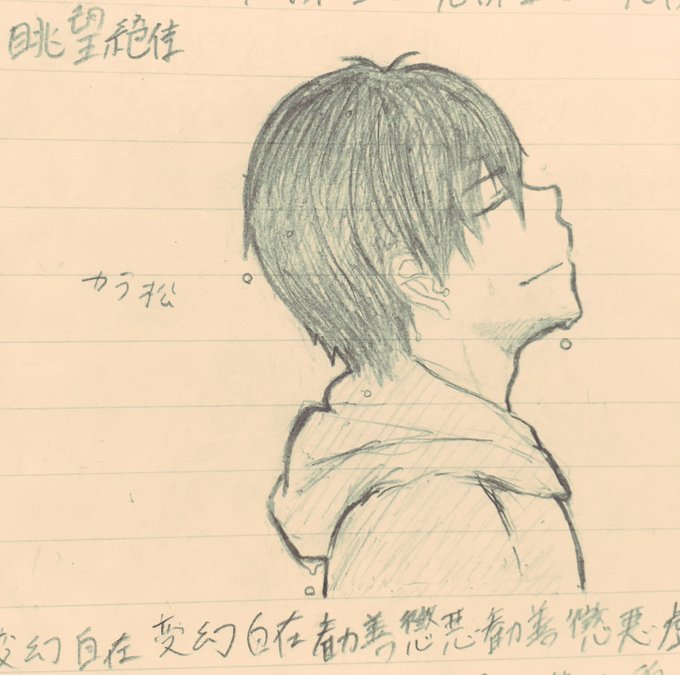 眺望絶佳
カラ松
変幻自在 変幻自在 勧善懲悪 勧善懲悪